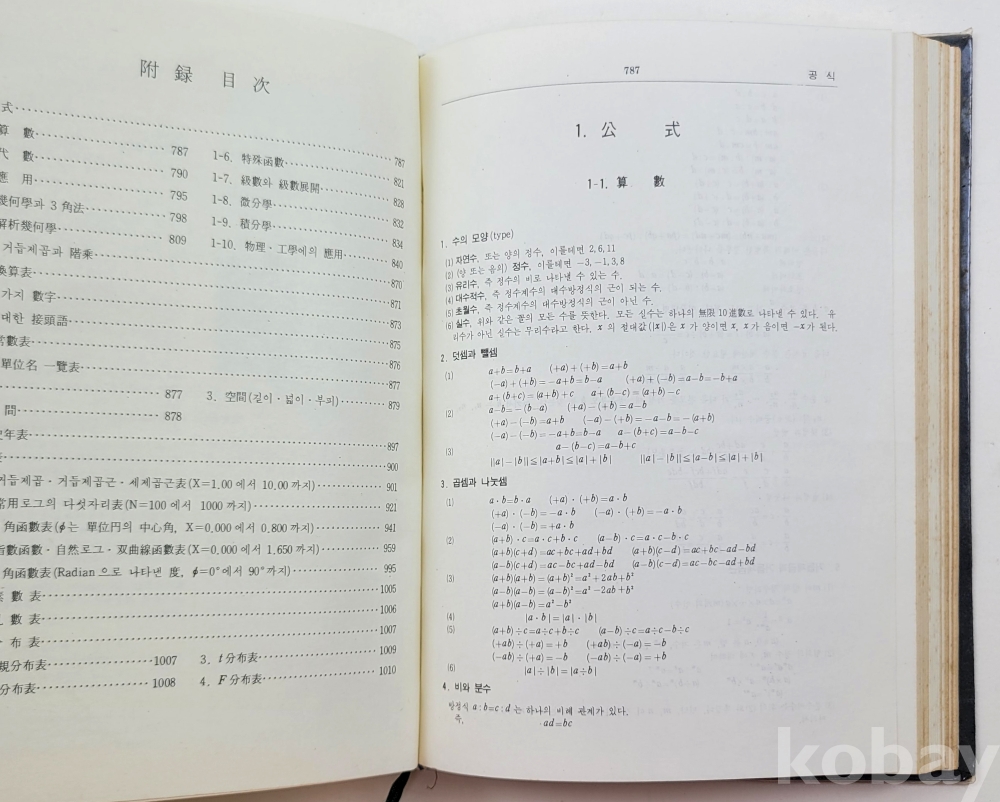 附 錄 目 次
式 787
算 數 787
代 數 790
應 用 795
幾何學과 3 角法 798
解析幾何學 809
1-6. 特殊函數 821
1-7. 級數와 級數展開 828
1-8. 微分學 832
1-9. 積分學 834
1-10. 物理·工學에의 應用 840
거듭제곱과 階乘 870
換算表 871
가지 數字 873
대한 接頭語 875
常數表 876
單位名 一覽表 877
877
間 878
3. 空間(길이·넓이·부피) 879
年表 897
900
거듭제곱·거듭제곱근·세제곱근表(X=1.00 에서 10.00 까지) 901
常用로그의 다섯자리表(N=100 에서 1000 까지) 921
角函數表(ϕ는 單位円의 中心角, X=0.000 에서 0.800 까지) 941
指數函數·自然로그·双曲線函數表(X=0.000 에서 1.650 까지) 959
角函數表(Radian 으로 나타낸 度, ϕ=0°에서 90°까지) 995
數 表 1005
數 表 1006
布 表 1007
規分布表 1007
分布表 1008
3. t分布表 1009
4. F分布表 1010
787
공 식
1. 公 式
1-1. 算 數
1. 수의 모양(type)
(1) 자연수, 또는 양의 정수, 이를테면 2, 6, 11
(2) (양 또는 음의) 정수, 이를테면 −3, −1, 3, 8
(3) 유리수, 즉 정수의 비로 나타낼 수 있는 수.
(4) 대수적수, 즉 정수계수의 대수방정식의 근이 되는 수.
(5) 초월수, 즉 정수계수의 대수방정식의 근이 아닌 수.
(6) 실수, 위와 같은 꼴의 모든 수를 뜻한다. 모든 실수는 하나의 無限 10 進數로 나타낼 수 있다. 유
리수가 아닌 실수는 무리수라고 한다. x 의 절대값(|x|)은 x 가 양이면 x, x 가 음이면 −x가 된다.
2. 덧셈과 뺄셈
(1) a+b=b+a (+a)+(+b)=a+b
(−a)+(+b)=−a+b=b−a (+a)+(−b)=a−b=−b+a
a+(b+c)=(a+b)+c a+(b−c)=(a+b)−c
(2) a−b=−(b−a) (+a)−(+b)=a−b
(+a)−(−b)=a+b (−a)−(+b)=−a−b=−(a+b)
(−a)−(−b)=−a+b=b−a a−(b+c)=a−b−c
a−(b−c)=a−b+c
(3) ||a|−|b||≦|a+b|≦|a|+|b| ||a|−|b||≦|a−b|≦|a|+|b|
3. 곱셈과 나눗셈
(1) a·b=b·a (+a)·(+b)=a·b
(+a)·(−b)=−a·b (−a)·(+b)=−a·b
(−a)·(−b)=+a·b
(2) (a+b)·c=a·c+b·c (a−b)·c=a·c−b·c
(a+b)(c+d)=ac+bc+ad+bd (a+b)(c−d)=ac+bc−ad−bd
(a−b)(c+d)=ac−bc+ad−bd (a−b)(c−d)=ac−bc−ad+bd
(3) (a+b)(a+b)=(a+b)²=a²+2ab+b²
(a−b)(a−b)=(a−b)²=a²−2ab+b²
(a+b)(a−b)=a²−b²
(4) |a·b|=|a|·|b|
(5) (a+b)÷c=a÷c+b÷c (a−b)÷c=a÷c−b÷c
(+ab)÷(+a)=+b (+ab)÷(−a)=−b
(−ab)÷(+a)=−b (−ab)÷(−a)=+b
(6) |a|÷|b|=|a÷b|
4. 비와 분수
방정식 a:b=c:d 는 하나의 비례 관계가 있다.
즉, ad=bc
kobay